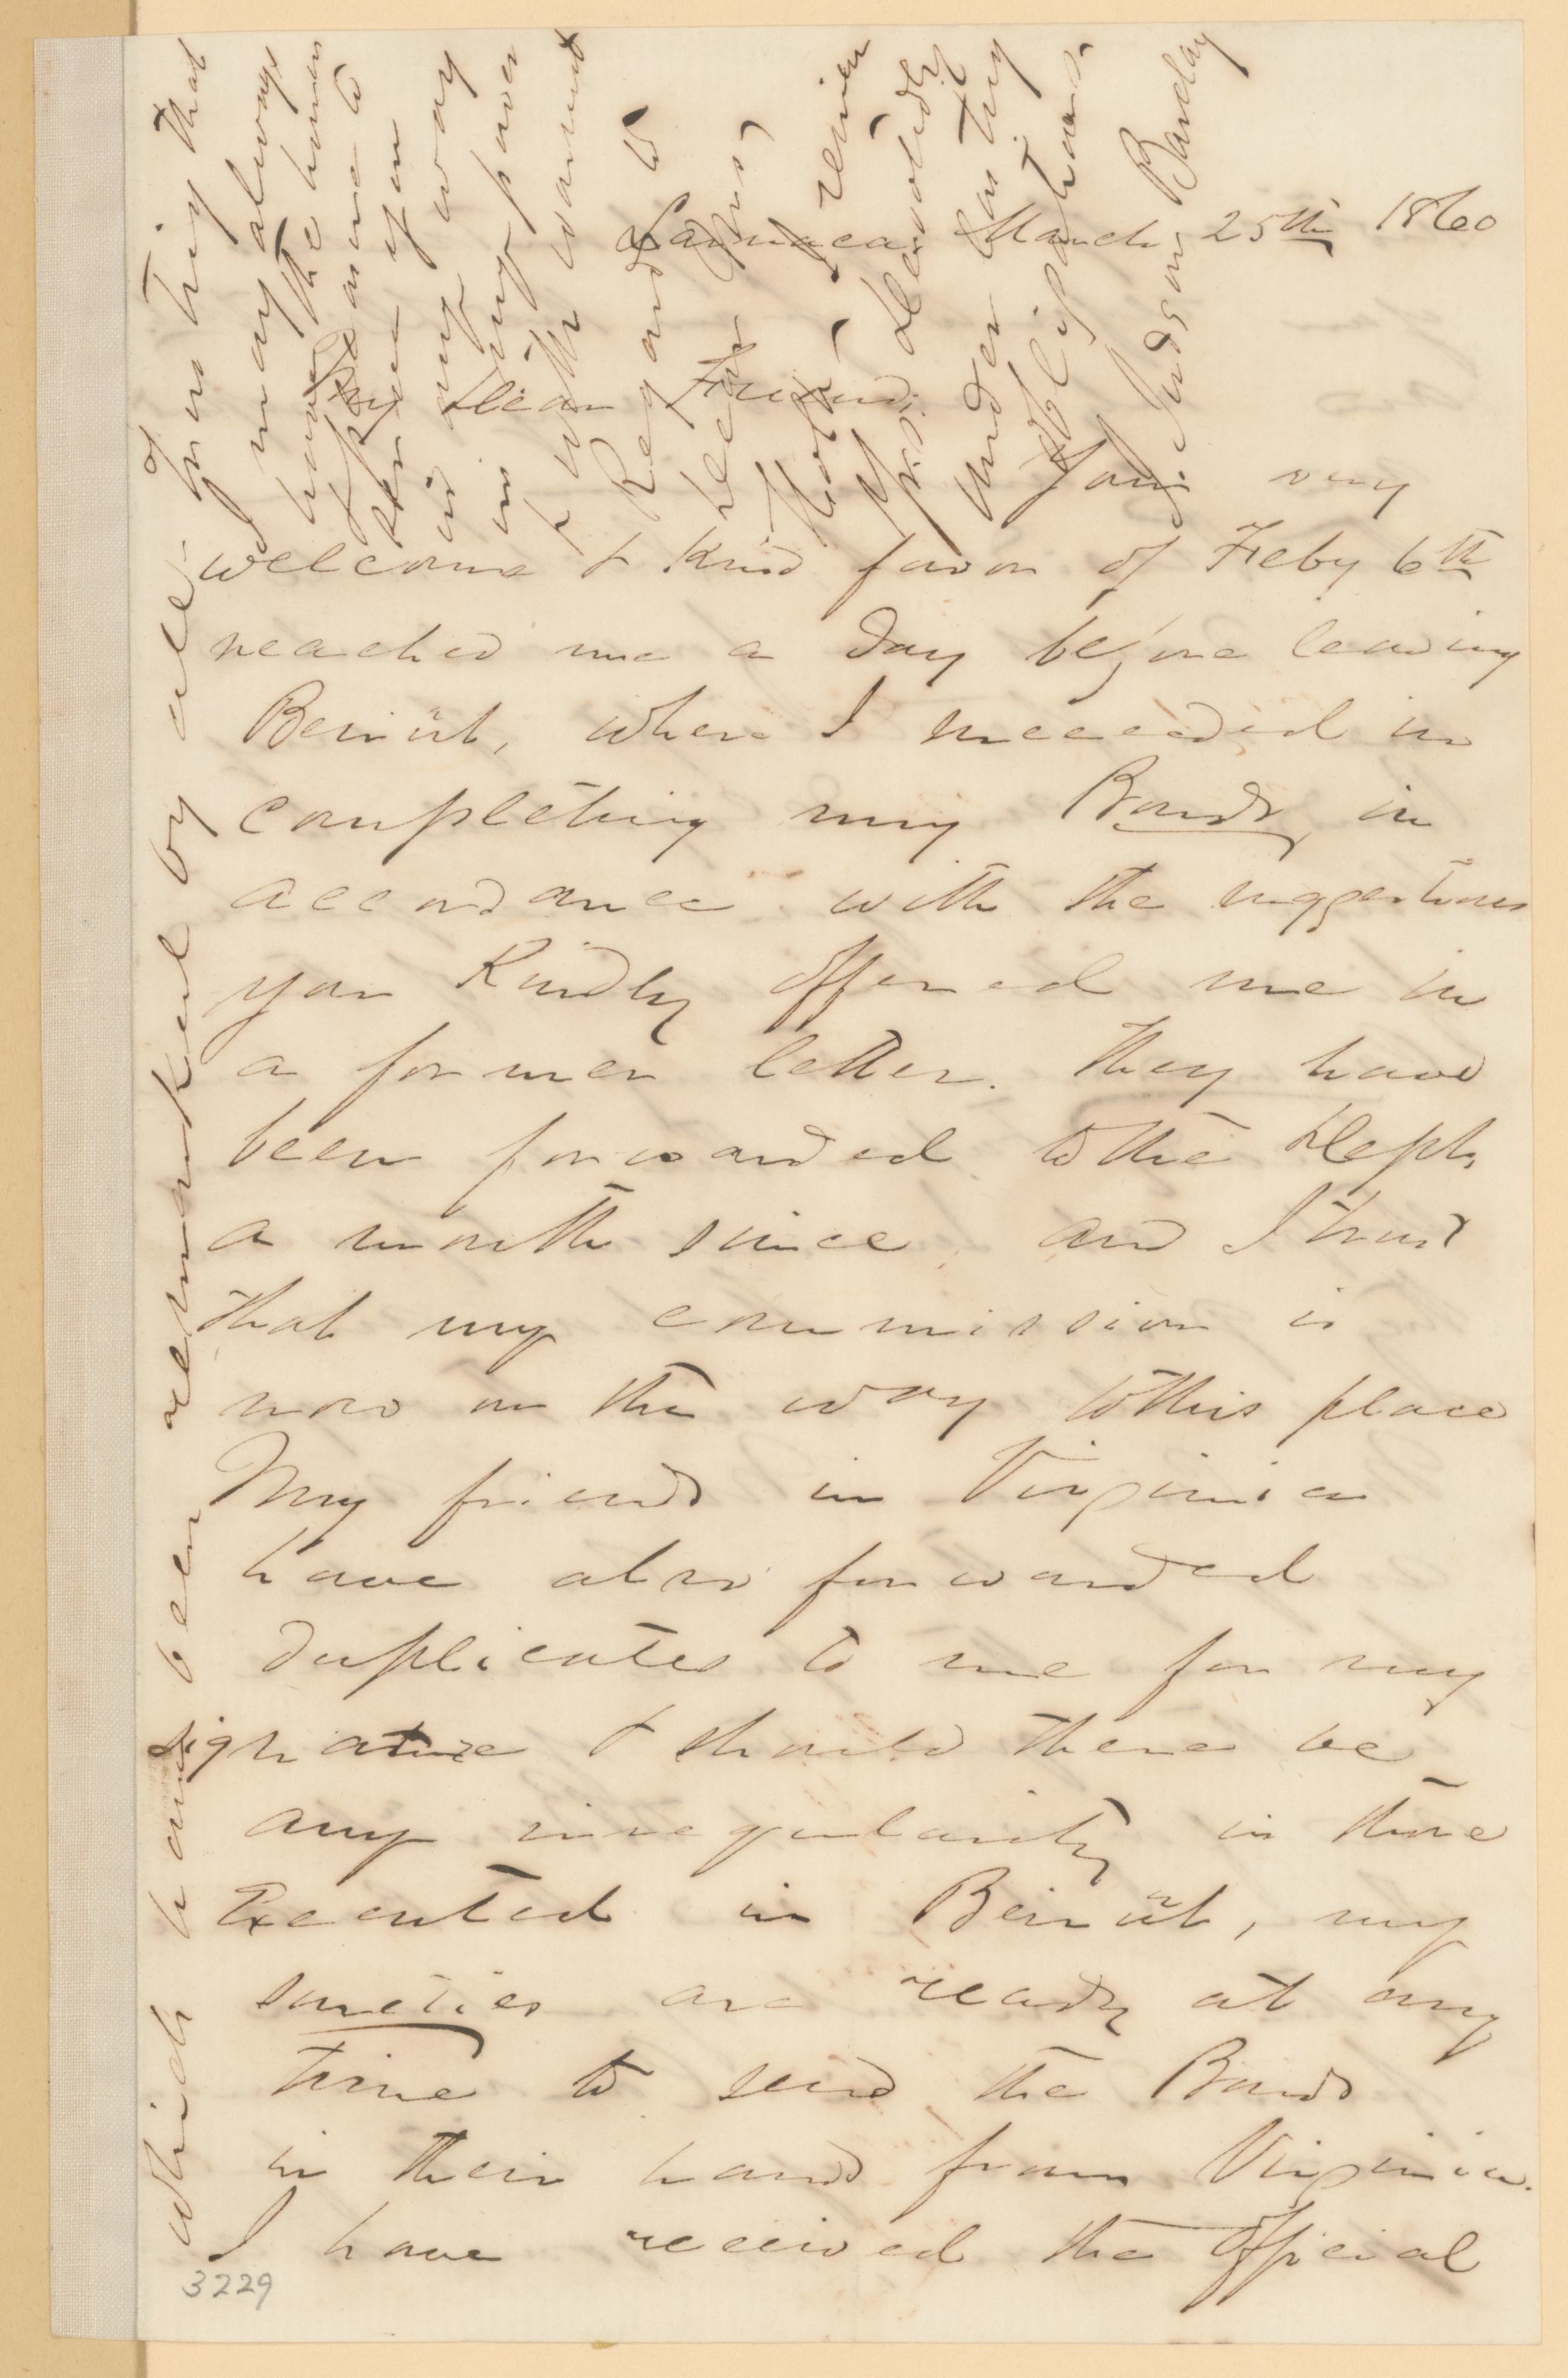 Larnaca March 25th 1860
My Dear Friend,
Your very
welcome & kind favor of Feby 6th
reached me a day before leaving
Beirût, where I succeeded in
completing my Bonds, in
accordance with the suggestions
you kindly offered me in
a former letter. They have
been forwarded to the Dept.
a month since, and I trust
that my commission is
now on the way to this place
My friends in Virginia
have also forwarded
duplicates to me for my
signature & should there be
any irregularity in those
Executed in Beirût, my
sureties are ready at any
time to send the Bonds
in their hands from Virginia.
I have received the official
which have been remarked by all.
Trusting that
I may always
have the honor
& pleasure to
serve you
in any way
in my power
& with warmest
Regards to
I remain
Yrs. devotedly
under lasting
obligations.
J. Judson Barclay
3229